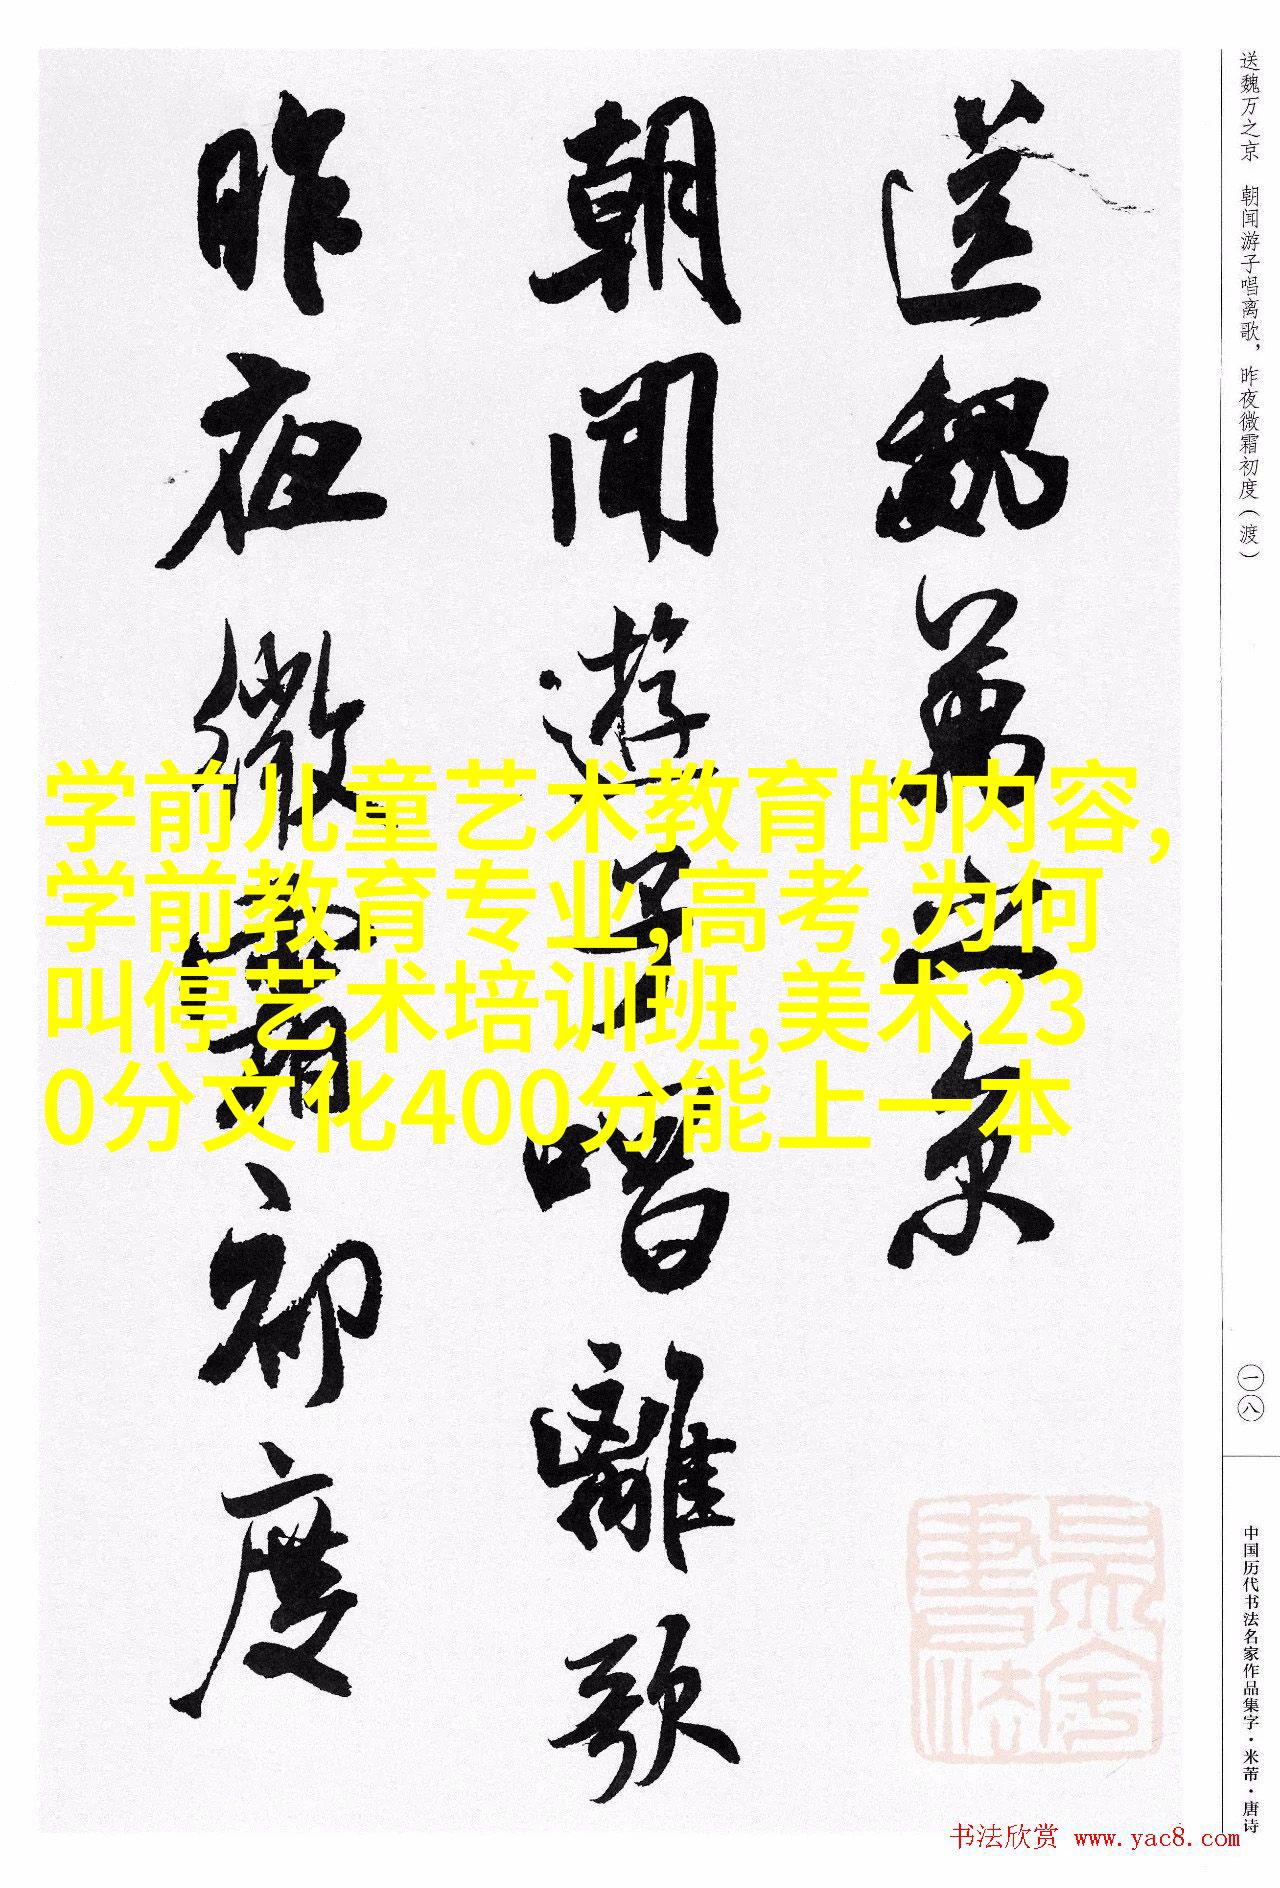 送魏萬之京
朝聞遊子唱離歌
昨夜微霜初度
学前儿童艺术教育的内容,
学前教育专业,高考,为何
叫停艺术培训班,美术23
0分文化400分能上一本
送魏万之京 朝闻游子唱离歌，昨夜微霜初度（渡）
一八
中国历代书法名家作品集字·米芾·唐诗
书法欣赏 www.yac8.com